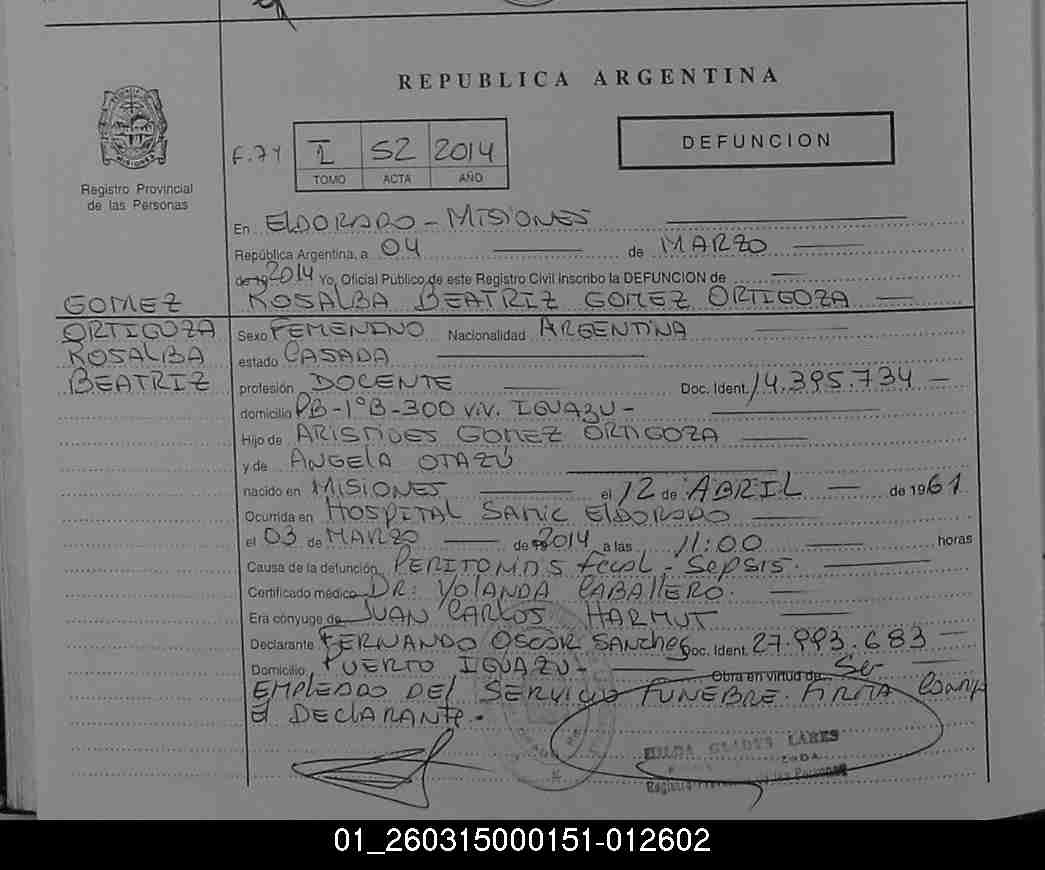 REPUBLICA ARGENTINA
DEFUNCION
F. 74 I 52 2014
TOMO ACTA AÑO
Registro Provincial
de las Personas
En ELDORADO - MISIONES
República Argentina, a 04 de MARZO
de 19 2014 Yo, Oficial Público de este Registro Civil inscribo la DEFUNCION de
ROSALBA BEATRIZ GOMEZ ORTIGOZA
GOMEZ
ORTIGOZA
ROSALBA
BEATRIZ
Sexo FEMENINO Nacionalidad ARGENTINA
estado CASADA
profesión DOCENTE Doc. Ident. 14.395.734
domicilio PB-1°B-300 viv. IGUAZU-
Hijo de ARISTIDES GOMEZ ORTIGOZA
y de ANGELA OTAZÚ
nacido en MISIONES el 12 de ABRIL de 1961
Ocurrida en HOSPITAL SAMIC ELDORADO
el 03 de MARZO de 19 2014 a las 11:00 horas
Causa de la defunción PERITONITIS fecal - Sepsis.
Certificado médico DR: YOLANDA CABALLERO.
Era cónyuge de JUAN CARLOS HARMUT
Declarante FERNANDO OSCAR SANCHEZ Doc. Ident. 27.993.683
Domicilio PUERTO IGUAZU- Obra en virtud de Ser
EMPLEADO DEL SERVICIO FUNEBRE. FIRMA
El DECLARANTE.
HILDA GLADYS LARES
de las Personas
01_260315000151-012602